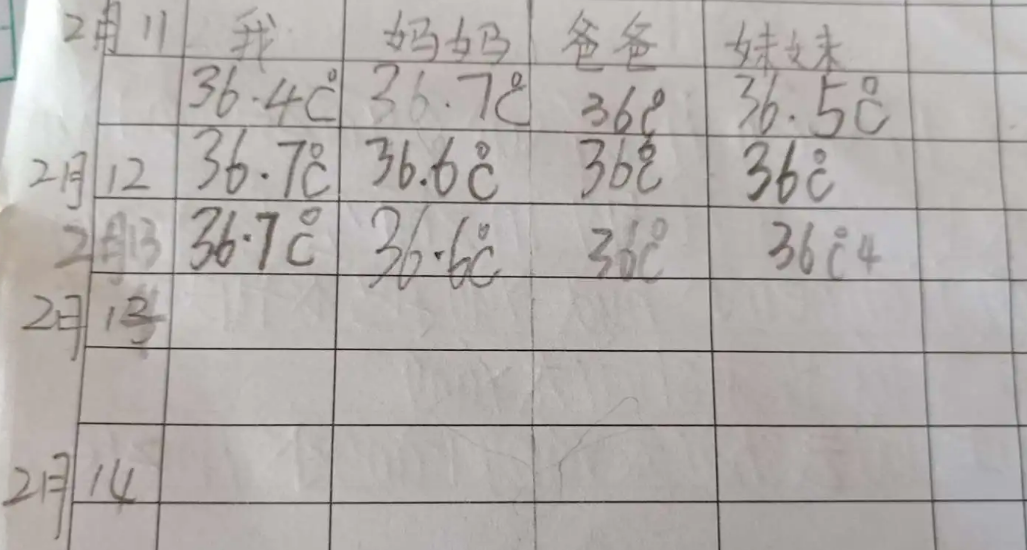 2月11 我 妈妈 爸爸 妹妹
36.4℃ 36.7℃ 36℃ 36.5℃
2月12 36.7℃ 36.6℃ 36℃ 36℃
2月13 36.7℃ 36.6℃ 36℃ 36℃4
2月
2月14